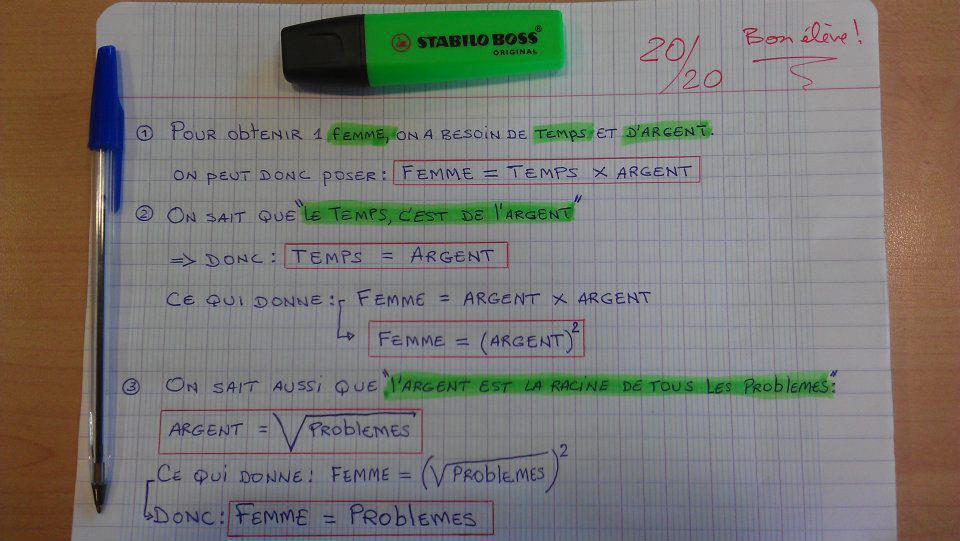 STABILO BOSS
ORIGINAL
20/20
Bon élève!
① POUR ObTENIR 1 fEMME, ON A BESOIN DE TEMPS ET D'ARGENT.
ON PEUT DONC POSER: FEMME = TEMPS X ARGENT
② ON SAIT QUE "LE TEMPS, C'EST DE l'ARGENT"
=> DONC: TEMPS = ARGENT
CE QUI DONNE: FEMME = ARGENT X ARGENT
↳ FEMME = (ARGENT)²
③ ON SAIT AUSSI QUE "l'ARGENT EST LA RACINE DE TOUS LES PRObLEMES":
ARGENT = √PRObLEMES
CE QUI DONNE: FEMME = (√PRObLEMES)²
↳ DONC: FEMME = PRObLEMES